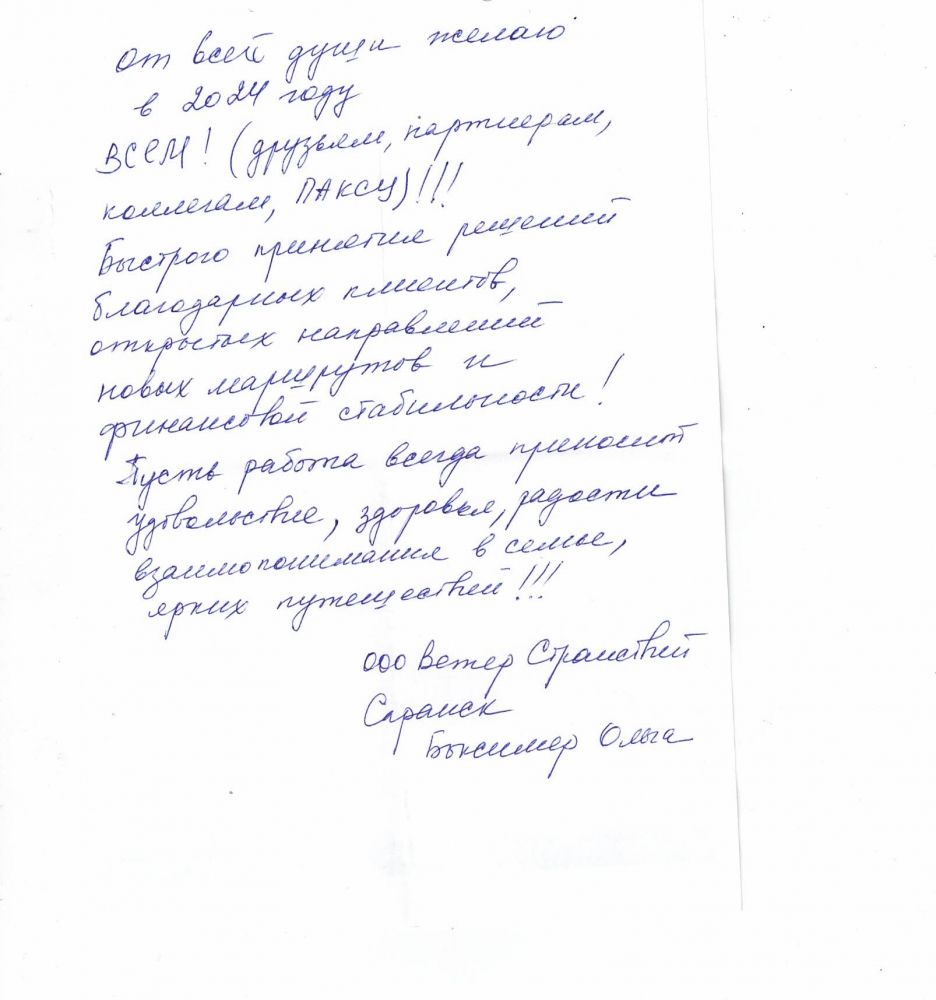 от всей души желаю
в 2024 году
ВСЕМ! (друзьям, партнерам,
коллегам, ПАКСУ)!!!
Быстрого принятия решений
благодарных клиентов,
открытых направлений
новых маршрутов и
финансовой стабильности!
Пусть работа всегда приносит
удовольствие, здоровья, радости
взаимопонимания в семье,
ярких путешествий!!!
ООО Ветер Странствий
Саранск
Ольга